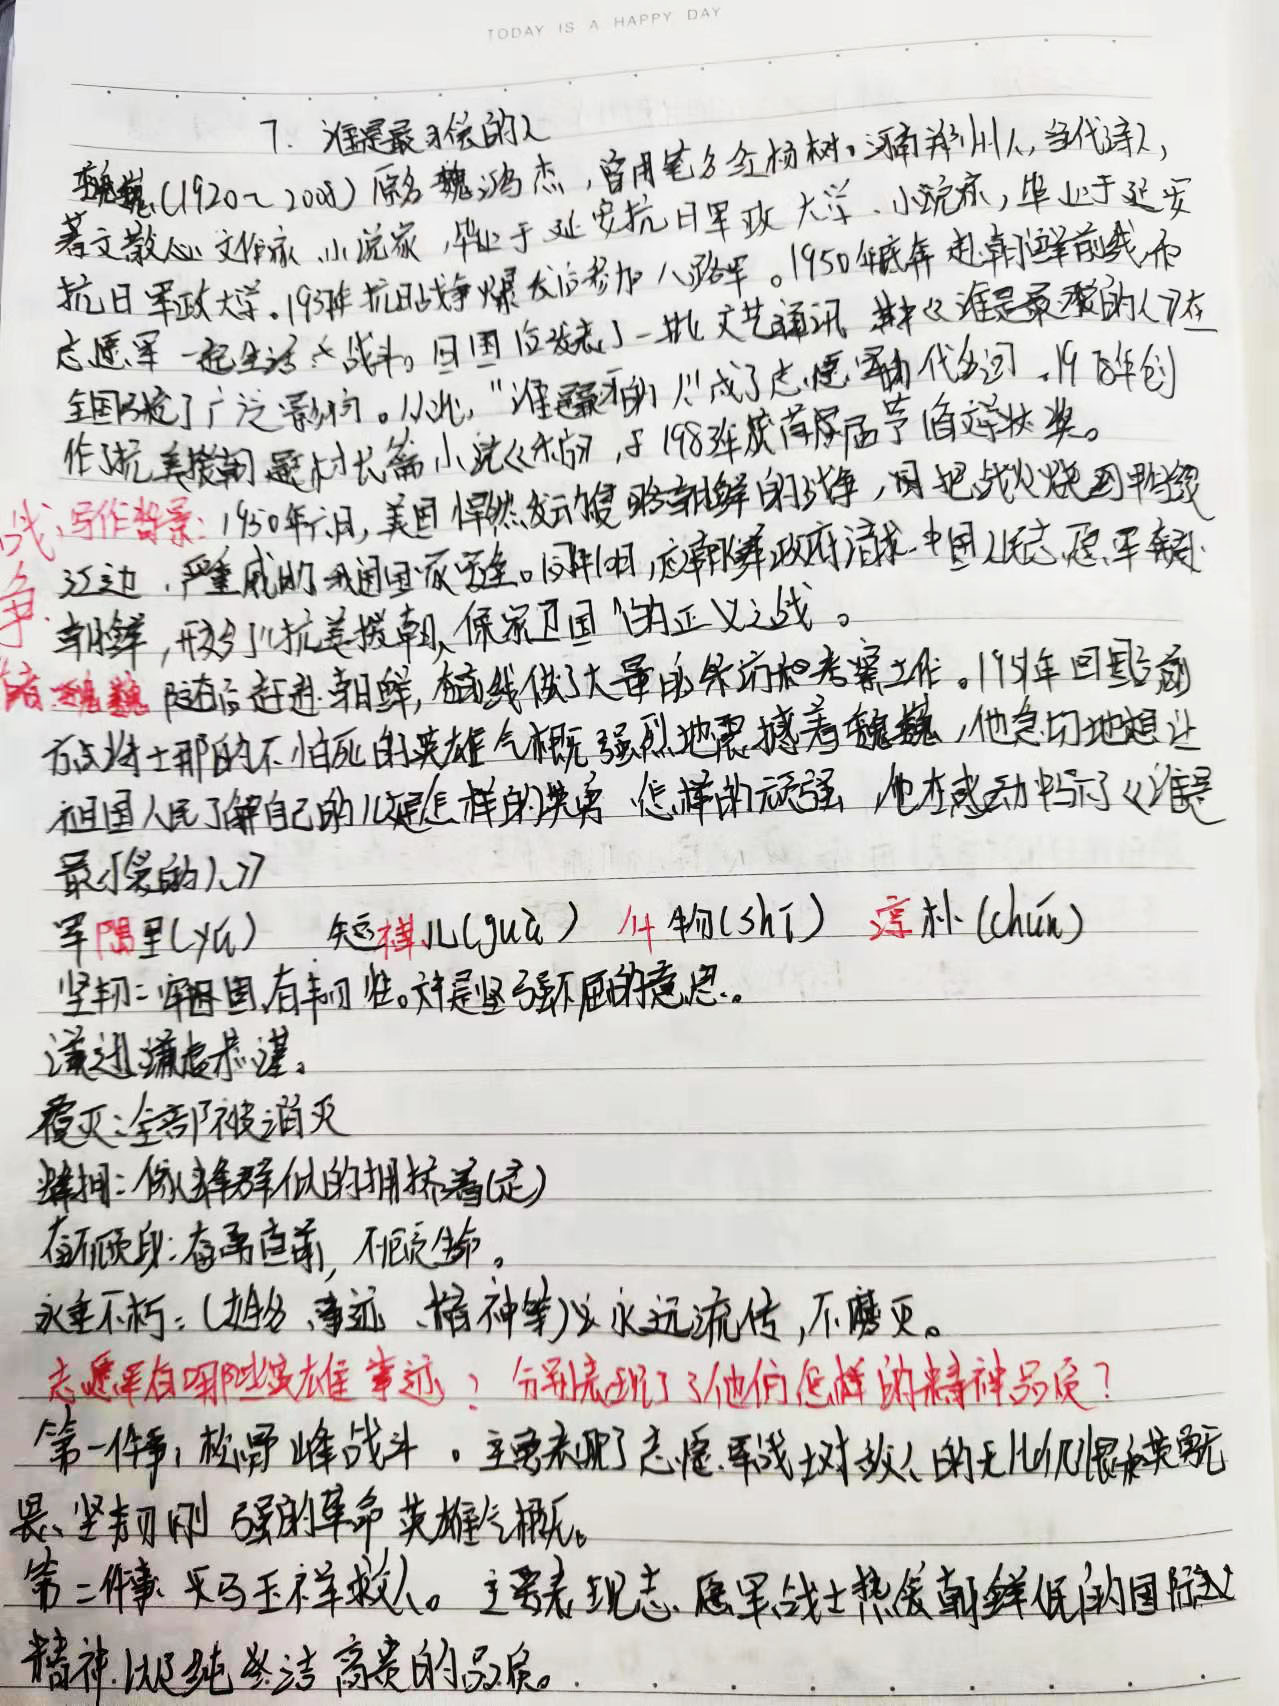 TODAY IS A HAPPY DAY
7. 谁是最可爱的人
魏巍(1920~2008)原名魏鸿杰,曾用笔名红杨树。河南郑州人,当代诗人,
著文散 文作家、小说家,毕业于延安抗日军政大学、小说家,毕业于延安
抗日军政大学。1937年抗日战争爆发后参加八路军。1950年底年赴朝鲜前线,和
志愿军一起生活、战斗。回国后发表了一批文艺通讯 其中《谁是最可爱的人》在
全国引起了广泛影响。从此,“谁是最可爱的人”成了志愿军的代名词。1978年创
作了抗美援朝题材长篇小说《东方》,于1983年获首届 茅盾文学奖。
战 写作背景:1950年六月,美国悍然发动侵略朝鲜的战争,且把战火烧到鸭绿
争 江边,严重威胁了我国国家安全。同年10月,应朝鲜政府请求 中国人民志愿军
朝鲜,开始了“抗美援朝、保家卫国”的正义之战。
魏巍随后赶进朝鲜,在前线做了大量的采访和考察工作。1951年回国后前
方战士那的不怕死的英雄气概强烈地震撼着魏巍,他急切地想让
祖国人民了解自己的儿是怎样的英勇 怎样的顽强,他在感动中写了《谁是
最可爱的人》
军隅里(yú) 短褂儿(guà) 什物(shí) 淳朴(chún)
坚韧:牢固,有韧性。文中是坚强不屈的意思。
谦逊:谦虚恭谨。
覆灭:全部被消灭
蜂拥:像蜂群似的拥挤着(走)
奋不顾身:奋勇直前,不顾生命。
永垂不朽:(姓名、事迹、精神等)永远流传,不磨灭。
志愿军有哪些英雄事迹?分别表现了了他们怎样的精神品质?
第一件事:松骨峰战斗。主要表现了志愿军战士对敌人的无比仇恨和英勇无
畏、坚韧刚强的革命英雄气概。
第二件事 马玉祥救人。主要表现志愿军战士热爱朝鲜人民的国际主义
精神以及纯 洁高贵的品质。